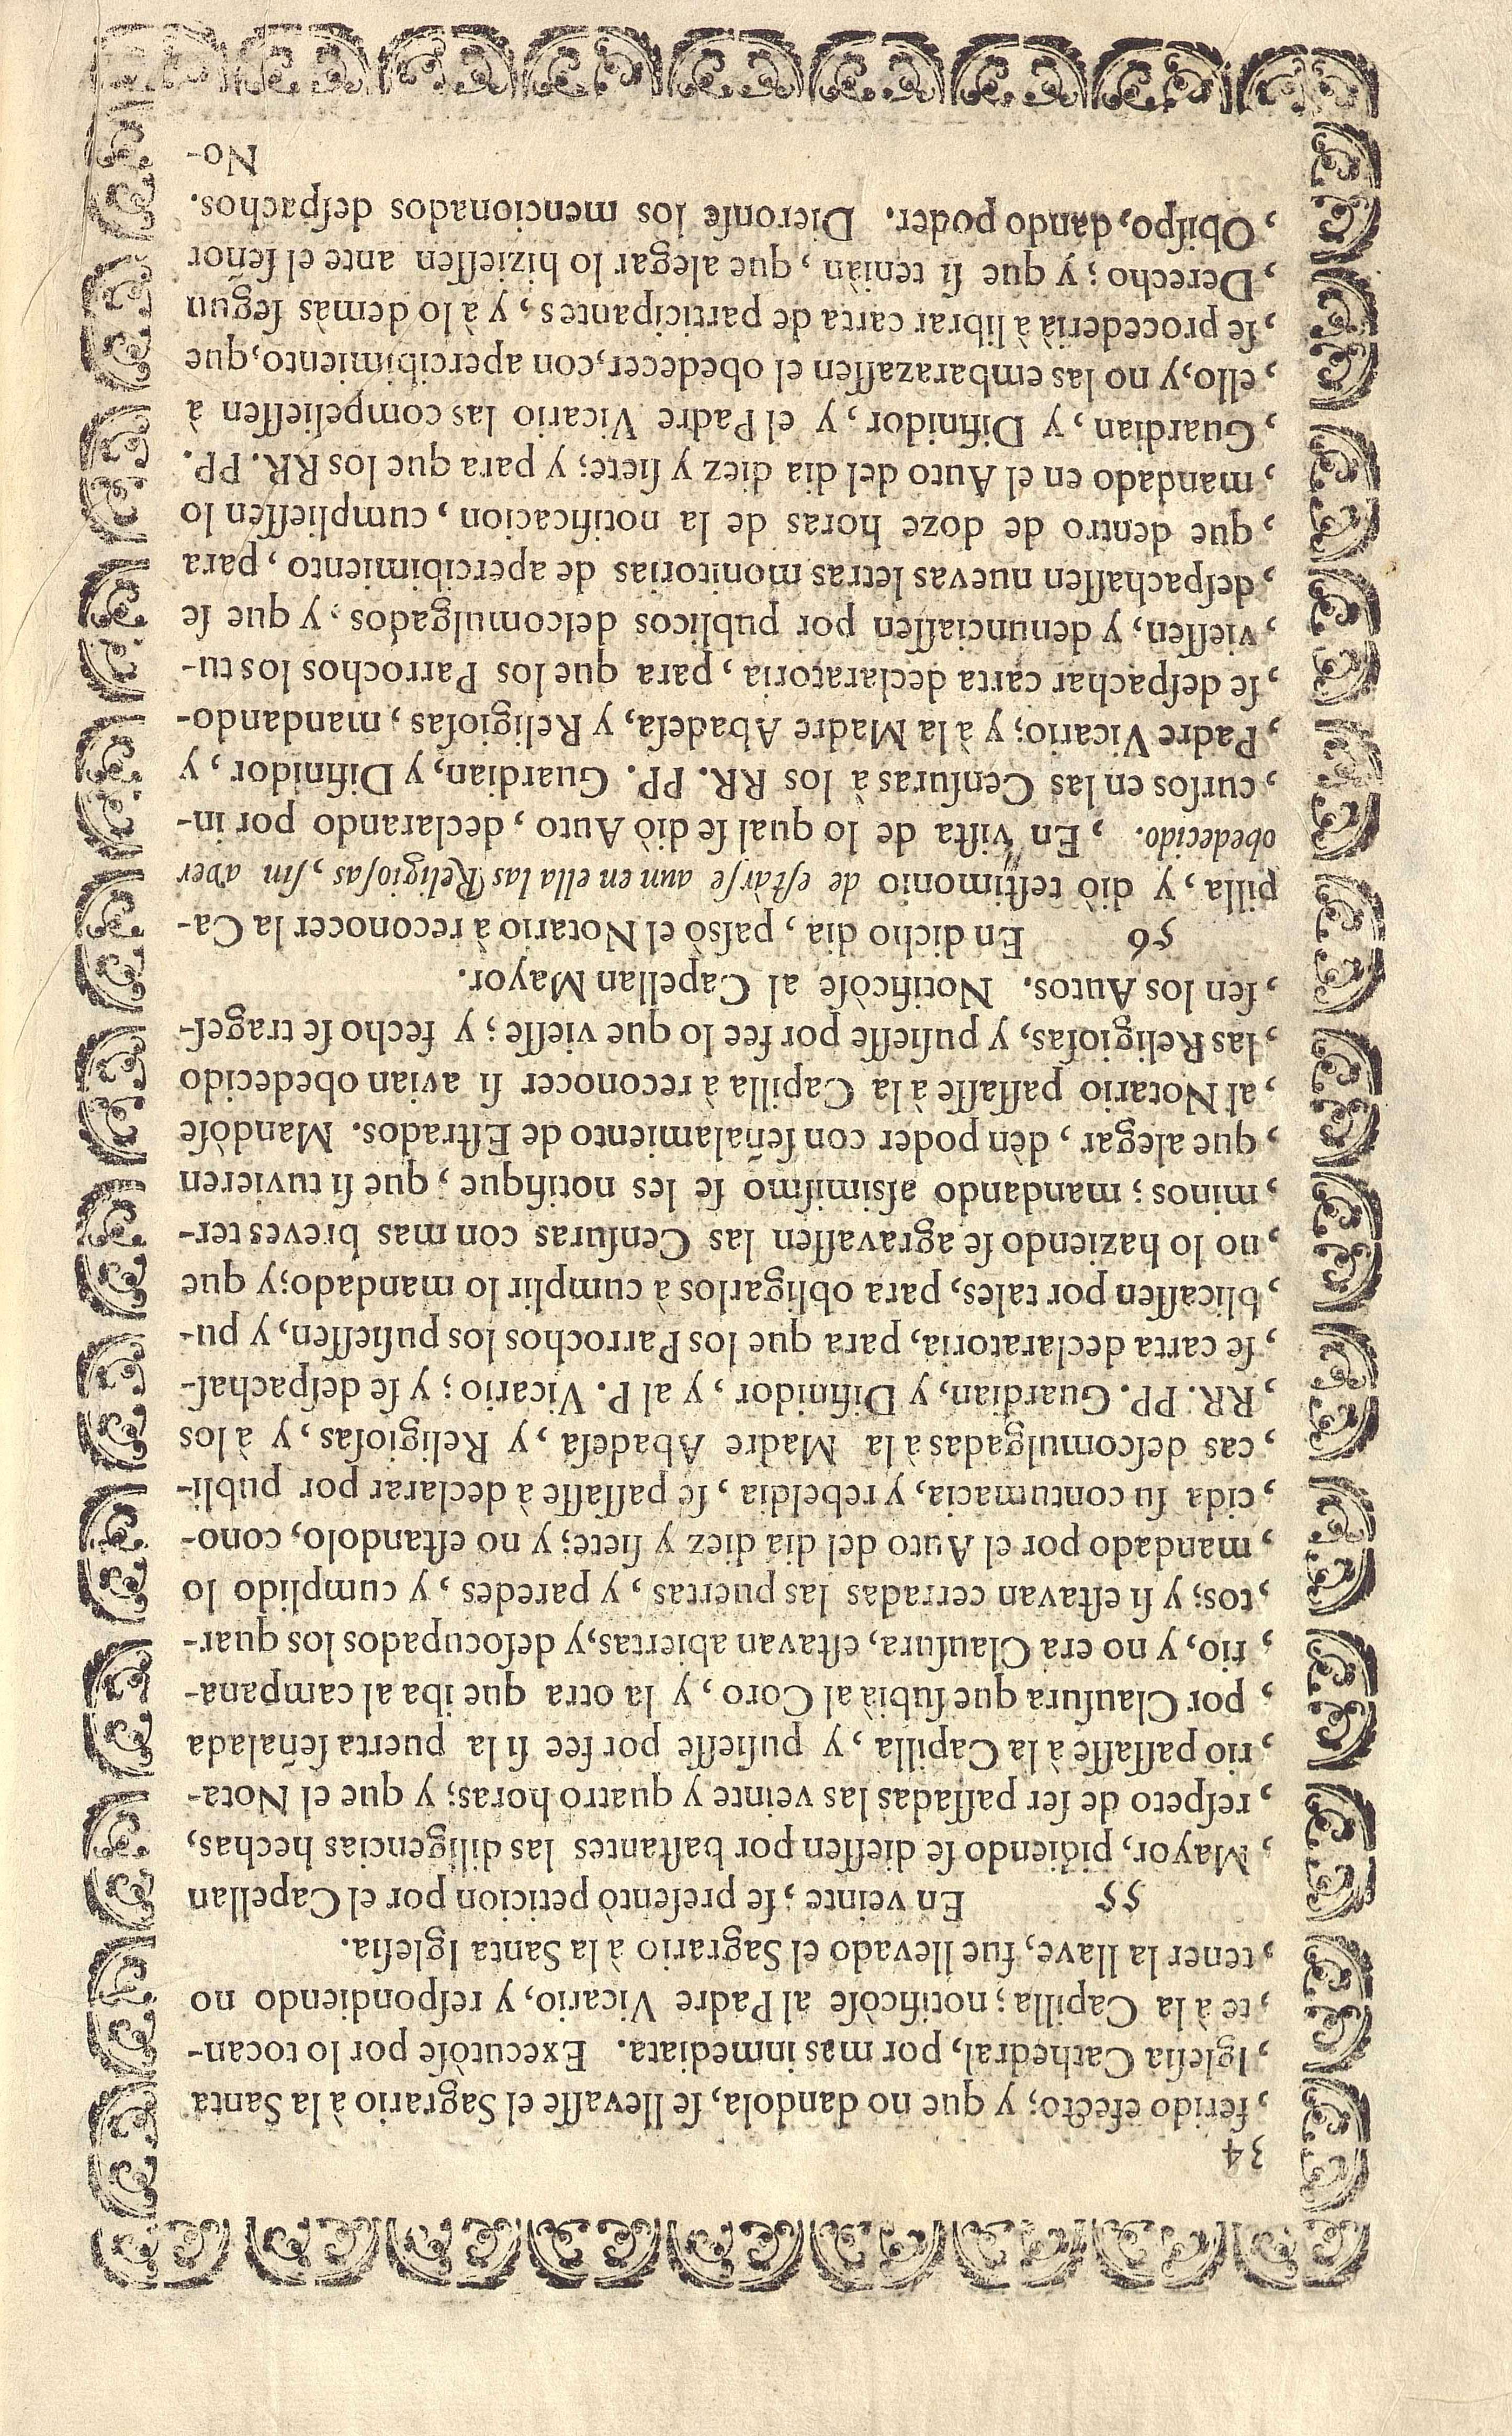 34
, ferido efecto; y que no dandola, ſe llevaſſe el Sagrario à la Santa
, Igleſia Cathedral, por mas inmediata. Executòſe por lo tocan-
, te à la Capilla; notificòſe al Padre Vicario, y reſpondiendo no
, tener la llave, fue llevado el Sagrario à la Santa Igleſia.
55 En veinte, ſe preſentò peticion por el Capellan
, Mayor, pidiendo ſe dieſſen por baſtantes las diligencias hechas,
, reſpeto de ſer paſſadas las veinte y quatro horas; y que el Nota-
, rio paſſaſſe à la Capilla, y puſieſſe por fee ſi la puerta ſeñalada
, por Clauſura que ſubià al Coro, y la otra que iba al campana-
, rio, y no era Clauſura, eſtavan abiertas, y deſocupados los quar-
, tos; y ſi eſtavan cerradas las puertas, y paredes, y cumplido lo
, mandado por el Auto del dia diez y ſiete; y no eſtandolo, cono-
, cida ſu contumacia, y rebeldia, ſe paſſaſſe à declarar por publi-
, cas deſcomulgadas à la Madre Abadeſa, y Religioſas, y à los
, RR. PP. Guardian, y Difinidor, y al P. Vicario; y ſe deſpachaſ-
, ſe carta declaratoria, para que los Parrochos los puſieſſen, y pu-
, blicaſſen por tales, para obligarlos à cumplir lo mandado; y que
, no lo haziendo ſe agravaſſen las Cenſuras con mas breves ter-
, minos; mandando aſsimiſmo ſe les notifique, que ſi tuvieren
, que alegar, dèn poder con ſeñalamiento de Eſtrados. Mandòſe
, al Notario paſſaſſe à la Capilla à reconocer ſi avian obedecido
, las Religioſas, y puſieſſe por fee lo que vieſſe; y fecho ſe trageſ-
, ſen los Autos. Notificòſe al Capellan Mayor.
56 En dicho dia, paſsò el Notario à reconocer la Ca-
pilla, y diò teſtimonio de eſtàrſe aun en ella las Religioſas, ſin aver
obedecido. , En viſta de lo qual ſe diò Auto, declarando por in-
, curſos en las Cenſuras à los RR. PP. Guardian, y Difinidor, y
, Padre Vicario; y à la Madre Abadeſa, y Religioſas, mandando-
, ſe deſpachar carta declaratoria, para que los Parrochos los tu-
, vieſſen, y denunciaſſen por publicos deſcomulgados, y que ſe
, deſpachaſſen nuevas letras monitorias de apercibimiento, para
, que dentro de doze horas de la notificacion, cumplieſſen lo
, mandado en el Auto del dia diez y ſiete; y para que los RR. PP.
, Guardian, y Difinidor, y el Padre Vicario las compelieſſen à
, ello, y no las embarazaſſen el obedecer, con apercibimiento, que
, ſe procederià à librar carta de participantes, y à lo demàs ſegun
, Derecho; y que ſi teniàn, que alegar lo hizieſſen ante el ſeñor
, Obiſpo, dando poder. Dieronſe los mencionados deſpachos.
No-